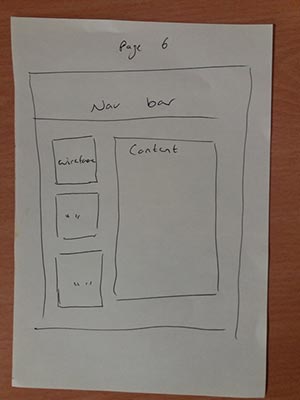 Page 6
Nav bar
wireframe
" "
" "
Content